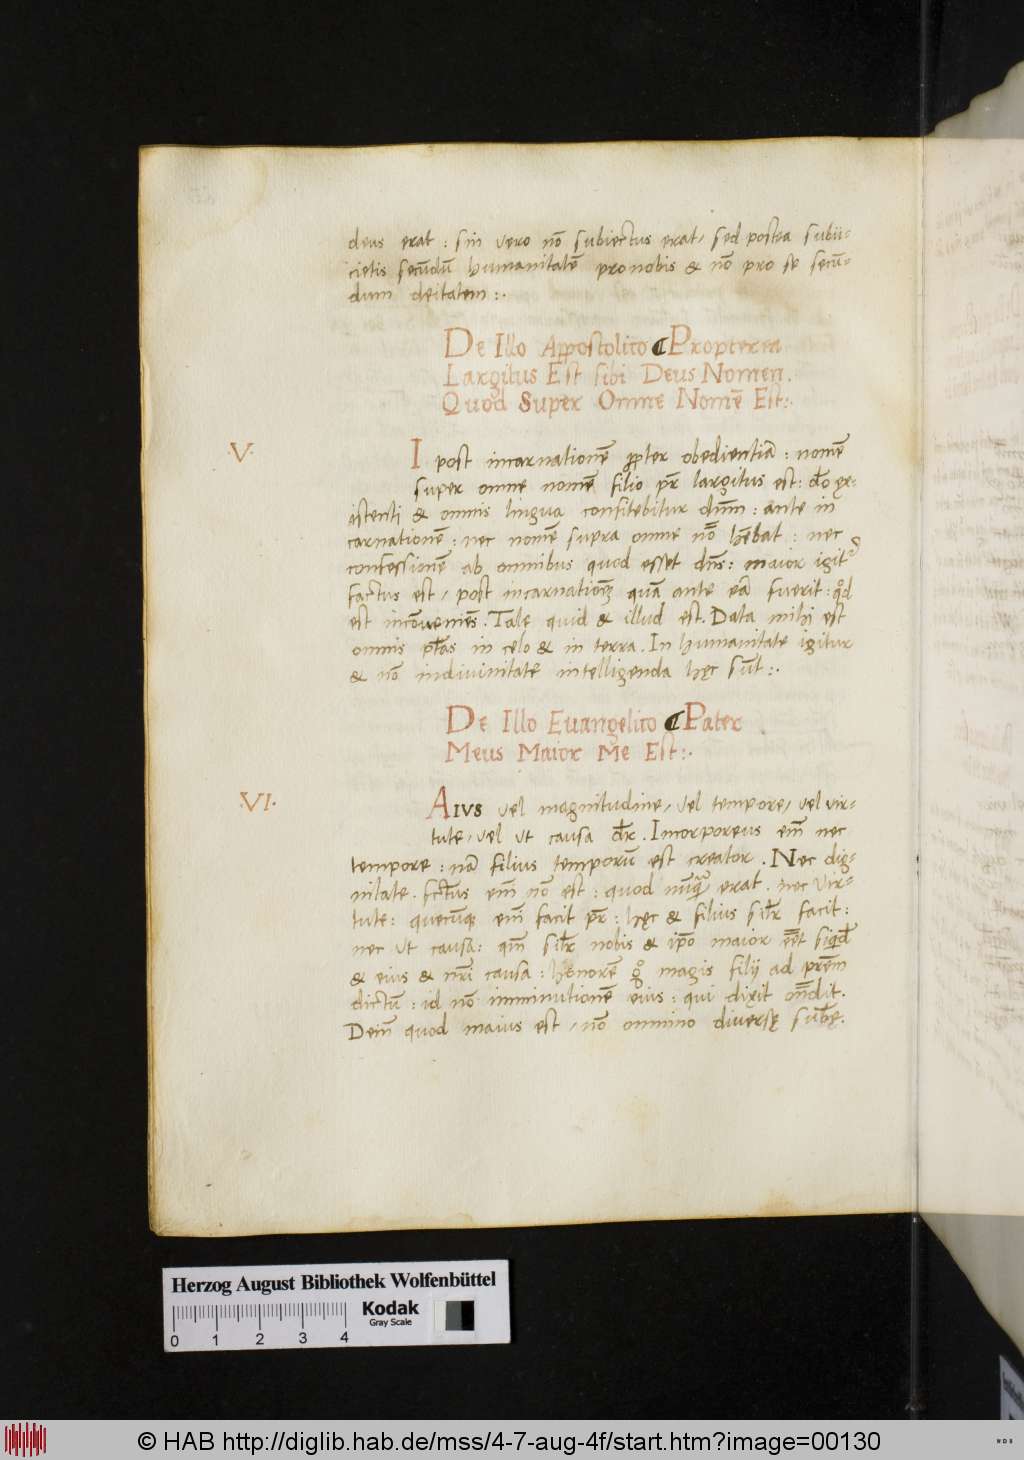 deus erat : sin vero nō subiectus erat, sed postea subii-
cietis secūdū humanitatē pro nobis & nō pro se secū-
dum deitatem :.
De Illo Appostolico ¶ Propterea
Largitus Est sibi Deus Nomen.
Quod Super Omne Nomē Est:.
V.
I post incarnationē ꝓpter obedientiā : nomē
super omne nomē filio pr̄ largitus est : dō̄ ex-
istenti & omnis lingua confitebitur dnm̄ : ante in
carnationē : nec nomē supra omne nō̄ hēbat : nec
confessionē ab omnibus quod esset dn̄s : maior igit᷑
factus est, post incarnationē quā ante eā fuerit : qd̄
est incōueniēs . Tale quid & illud est . Data mihi est
omnis pt̄as in celo & in terra . In humanitate igitur
& nō indivinitate intelligenda hęc sūt :.
De Illo Euangelico ¶ Pater
Meus Maior Me Est:.
VI.
Aius vel magnitudine, vel tempore, vel vir-
tute, vel ut causa dr̄ . Incorporeus em̄ nec
tempore : nā filius temporū est creator . Nec dig-
nitate . fctūs em̄ nō est : quod nūq̄ erat . nec vir-
tute : quecūq; em̄ facit pr̄ : hęc & filius silr̄ facit :
nec ut causa : qm̄ silr̄ nobis & ipō maior eēt siqd̄
& eius & nr̄i causa : honorē gͦ magis filij ad prēm
dictū : id nō imminutionē eius : qui dixit on̄dit .
Dem̄ quod maius est, nō omnino diversę subę̄ .
Herzog August Bibliothek Wolfenbüttel
0 1 2 3 4
Kodak
Gray Scale
© HAB http://diglib.hab.de/mss/4-7-aug-4f/start.htm?image=00130